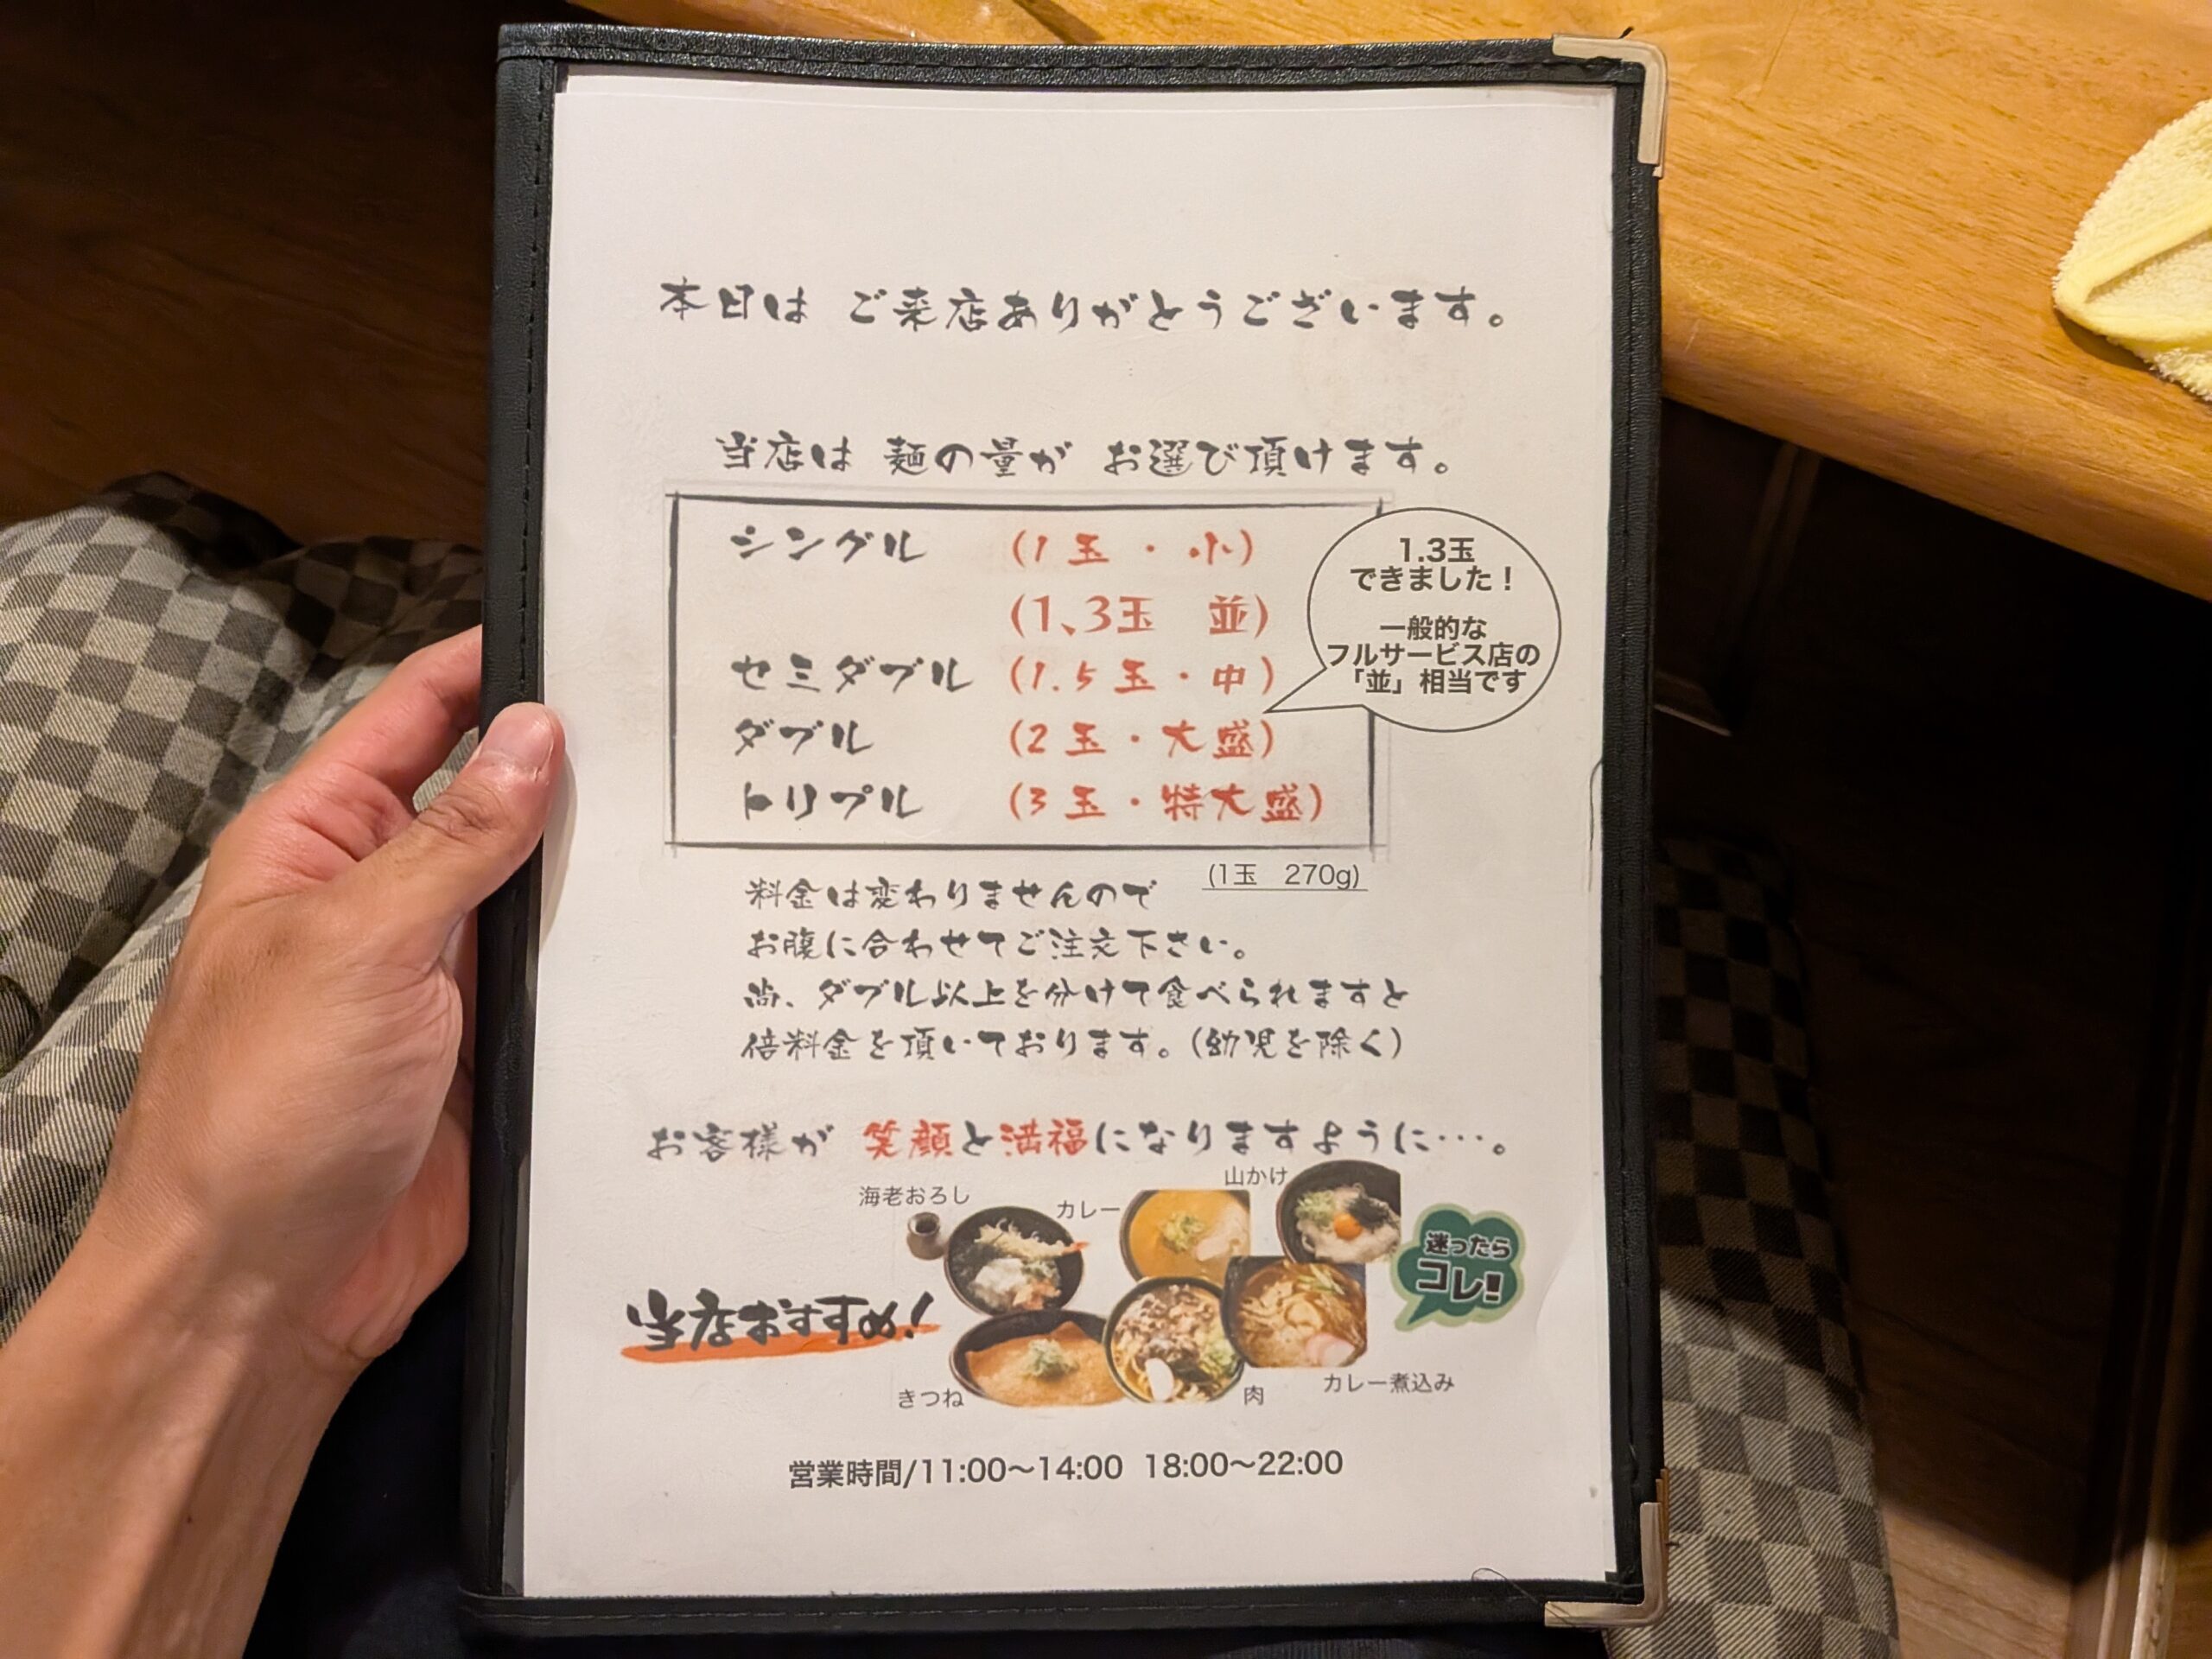 本日は ご来店ありがとうございます。
当店は 麺の量が お選び頂けます。
シングル (1玉・小)
(1、3玉 並)
セミダブル (1.5玉・中)
ダブル (2玉・大盛)
トリプル (3玉・特大盛)
1.3玉
できました!
一般的な
フルサービス店の
「並」相当です
(1玉 270g)
料金は変わりませんので
お腹に合わせてご注文下さい。
尚、ダブル以上を分けて食べられますと
倍料金を頂いております。(幼児を除く)
お客様が 笑顔と満福になりますように…。
海老おろし
カレー
山かけ
迷ったら
コレ!
当店おすすめ!
きつね
肉
カレー煮込み
営業時間/11:00〜14:00 18:00〜22:00